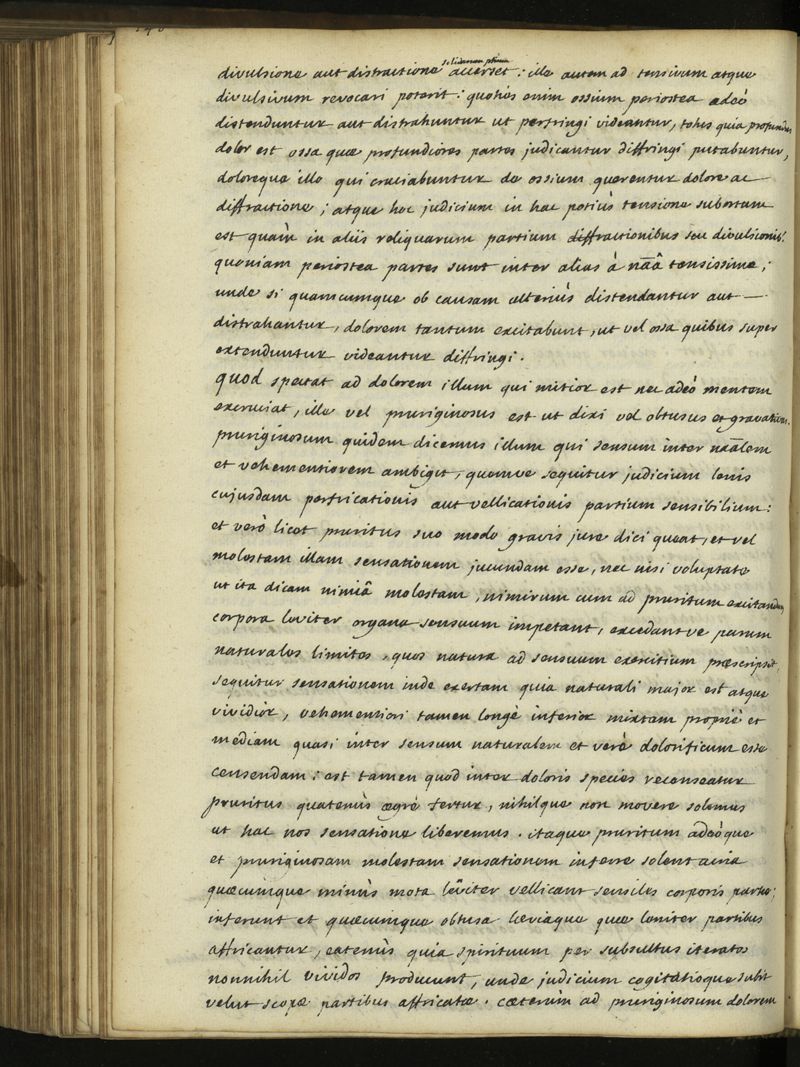 divulsione aut distractione solidarum partium accerset : ille autem ad tensivum atque
divulsivum revocari poterit : quoties enim ossium periostea adeò
distenduntur aut distrahuntur ut perfringi videantur, totus quia profundus
dolor est ossa quæ profundiores partes judicantur diffringi putabuntur,
doloreque illo qui cruciabuntur de ossium querentur dolore ac
diffractione ; atque hoc judicium in hac potiùs tensione subortum
est quàm in aliis reliquarum partium diffractionibus seu divulsionib.
quoniam periostea partes sunt inter alias à nãâ tensissimæ ;
unde si quamcumque ob causam ulteriùs distendantur aut —
distrahantur, dolorem tantum excitabunt, ut vel ossa quibus super
extenduntur videantur diffringi .
quod spectat ad dolorem illum qui mitior est nec adeò mentem
excruciat, ille vel pruriginosus est ut dixi vel obtusus et gravativus.
pruriginosum quidem dicemus illum qui sensum inter nãâlem
et vehementiorem ambigit, quemve sequitur judicium lenis
cujusdam perfricationis aut vellicationis partium sensibilium :
et verò licet pruritus suo modo gravis jure dici queat, et vel
molestam illam sensationem jucundam esse, nec nisi voluptate
ut ita dicam nimiâ molestam, nimirum cum ad pruritum excitandum
corpora leviter organa sensuum impetant, excedantve parum
naturales limites, quos natura ad sensuum exercitium præscripsit,
sequitur sensationem inde exertam quia naturali major est atque
vividior, vehementiori tamen longè inferior mixtam propriè et
mediam quasi inter sensum naturalem et verè dolorificum esse
censendam : est tamen quod inter doloris species recenseatur
pruritus quatenùs ægrè fertur, nihilque non movere solemus
ut hac nos sensatione liberemus . itaque pruritum adeòque
et pruriginosam molestam sensationem inferre solent
quæcumque minùs mota lêviter vellicant sensiles corporis partes ;
inferunt et quæcumque obtusa læviaque quæ leniter partibus
affricantur, eatenùs quia spirituum per subsultus iteratos
nonnihil vividos producunt, unde judicium cogitatioque subit
velut scopæ partibus affricatæ . cæterùm ad pruriginosum dolorem